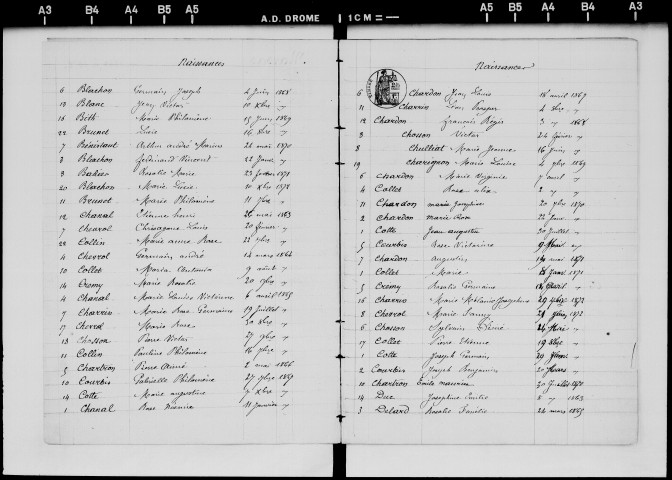 A3 B4 A4 B5 A5 A.D. DROME 1 CM = A5 B5 A4 B4 A3
Naissances
6 Blachon Germain Joseph 4 Juin 1868
13 Blanc Jean Victor 10 Xbre "
16 Both Marie Philomène 15 Juin 1869
22 Brunet Lucie 16 Xbre "
7 Bénistant Arthur andré Marius 26 mai 1870
2 Blachon Ferdinand Vincent 22 Janv. "
3 Rosalie Marie 23 février 1871
20 Blachon Marie Lucie 10 Xbre 1872
11 Brunet Marie Philomène 11 9bre "
12 Chanal Etienne henri 26 mai 1863
7 Chevrol Louis 20 février "
28 Collin Marie anne Rose 22 "
4 Chevrol Germain andré 14 mars 1864
10 Collet Maria 9 août "
14 Cremy Marie Rosalie 20 "
4 Chanal Marie Louise Victorine 6 avril 1865
9 Charrin Marie Rose Germaine 19 Juillet "
17 Chevrol Marie Rose 30 Xbre "
13 Chosson Pierre Victor 27 9bre "
11 Collin Pauline Philomène 16 "
5 Charbion Pierre 2 mai 1866
10 Courbis Gabrielle Philomène 27 1867
14 Cotte Marie augustine Xbre "
1 Chanal Rose 11 Janvier "
Naissances
6 Chardon Jean Louis 18 avril 1867
11 Charrin Léon Prosper 4 Xbre "
12 Chardon François Régis 3 " 1868
3 Chosson Victor 24 février "
8 Chulliat Marie Jeanne 16 Juin "
19 Charignon Marie Louise 4 9bre 1869
6 Chardon Marie Virginie 7 avril "
4 Collet Rose 2 " "
21 Chardon marie Joséphine 20 9bre 1870
2 Chardon marie Rose 22 Janv. "
1 Cotte Jean augustin 30 Juillet "
5 Courbis Rose Victorine 9 "
7 Chardon Augustin 14 mai 1871
1 Collet Marie 18 Janv 1871
5 Cremy Rosalie Germaine 18 avril "
16 Charrin Marie Mélanie Joséphine 29 1872
8 Chevrol Marie Fanny 28 1872
6 Chosson Sylvain 24 "
17 Collet Jean Etienne 19 Xbre "
1 Cotte Joseph Germain 20 "
2 Courbis Joseph Benjamin 20 "
10 Charbion Emile 20 Juillet 1870
14 Duc Joséphine Emilie 8 " 1863
3 Délard Rosalie 24 mars 1865